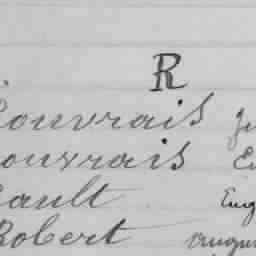 R
Rouvrais
Rouvrais
Rault Eug
Robert augu